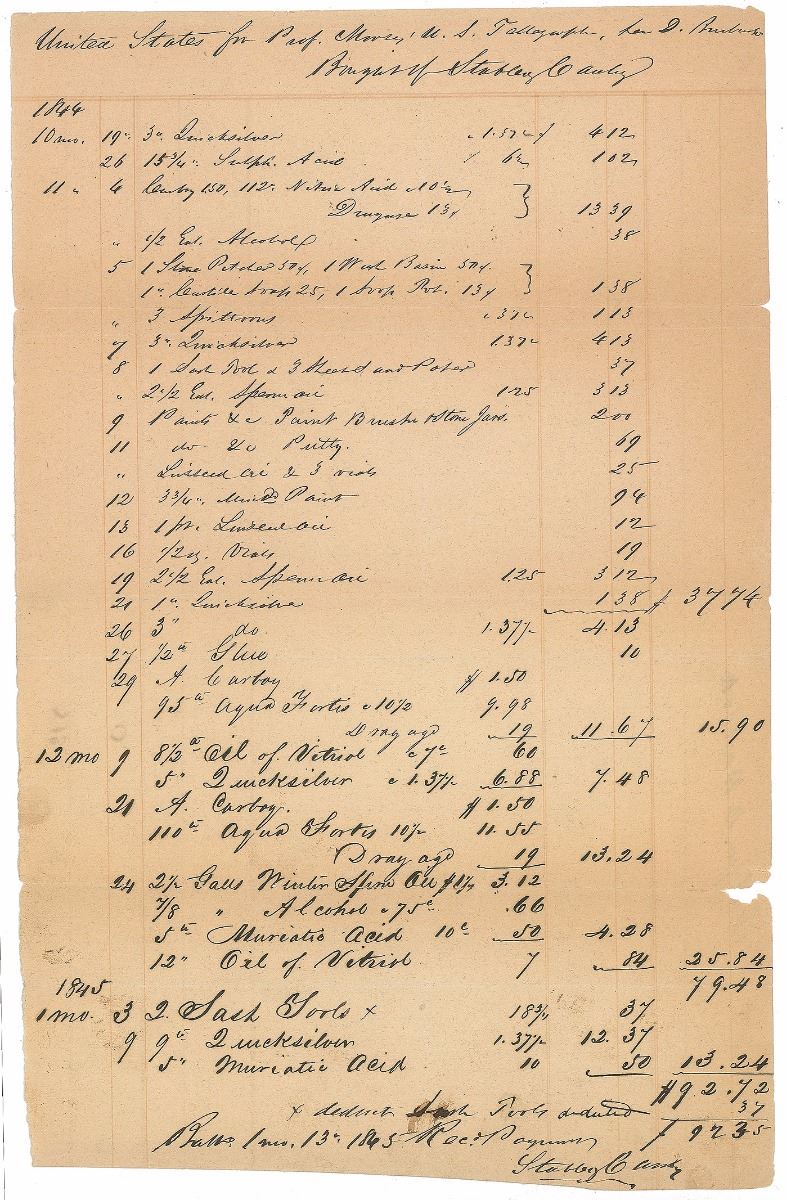 United States for Prof. Morse's U. S. Tellegraph, per D.
Bought of Stabler & Canby
1844
10 mo. 19th 3 lb Quicksilver 1.37½ 4 12
26 15¾ " Sulph. Acid 6½ 1 02
11 " 4 Carboy 150, 112 lb Nitric Acid 10½
Drayage 19 13 39
" 1/2 Gal. Alcohol 38
5 1 Stone Pitcher 50¢, 1 Wash Basin 50¢.
1 lb Castile Soap 25, 1 Soap Pot. 13¢ 1 38
" 3 Spittoons 37½ 1 13
7 3 lb Quicksilver 1.37½ 4 13
8 1 Sash Tool & 3 Sheets Sand Paper 37
" 2 1/2 Gal. Sperm oil 1.25 3 13
9 Paints &c Paint Brush & Stone Jars. 2 00
11 do &c Putty. 69
" Linseed oil & 3 vials 25
12 3 3/4 " Mixed Paint 94
13 1 pt. Linseed oil 12
16 1/2 dz. Vials 19
19 2 1/2 Gal. Sperm oil 1.25 3 12
21 1 lb Quicksilver 1 38 $ 37 74
26 3 " do 1.37½ 4.13
27 1/2 lb Glue 10
29 A. Carboy $1.50
95 lb Aqua Fortis 10½ 9.98
Drayage 19 11.67 15.90
12 mo 9 8½ lb Oil of Vitriol 7c 60
5 " Quicksilver 1.37½ 6.88 7.48
21 A. Carboy. $1.50
110 lb Aqua Fortis 10½ 11.55
Drayage 19 13.24
24 2½ Galls Winter Sperm Oil $1¼ 3.12
7/8 " Alcohol 75c .66
5 lb Muriatic Acid 10c 50 4.28
12 " Oil of Vitriol 7 84 25.84
79.48
1845
1 mo. 3 2 Sash Tools x 18¾ 37
9 9 lb Quicksilver 1.37½ 12.37
5 " Muriatic Acid 10 50 13.24
$92.72
x deduct Sash Tools deducted 37
Balto. 1 mo. 13th 1845 Recd Payment $ 92 35
Stabler & Canby